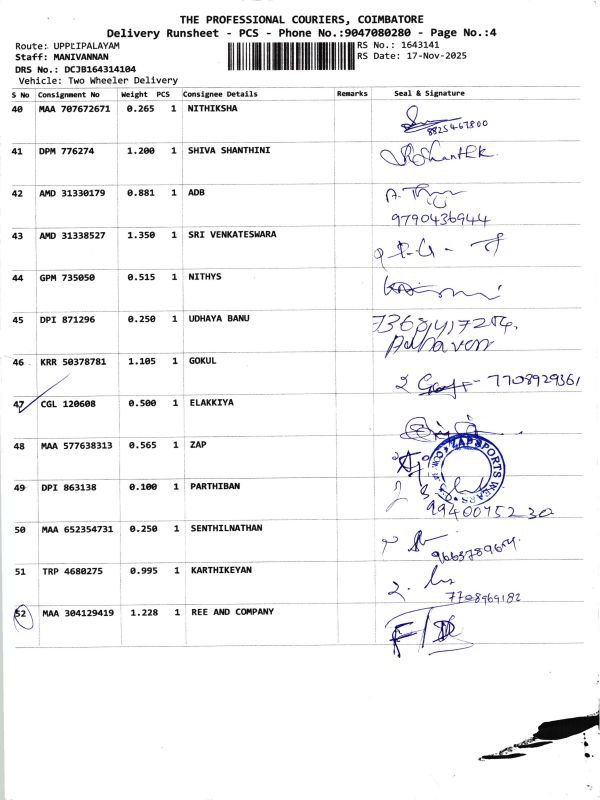 THE PROFESSIONAL COURIERS, COIMBATORE
Delivery Runsheet - PCS - Phone No.:9047080280 - Page No.:4
Route: UPPLIPALAYAM RS No.: 1643141
Staff: MANIVANNAN RS Date: 17-Nov-2025
DRS No.: DCJB164314104
Vehicle: Two Wheeler Delivery
S No Consignment No Weight PCS Consignee Details Remarks Seal & Signature
40 MAA 707672671 0.265 1 NITHIKSHA
8825467800
41 DPM 776274 1.200 1 SHIVA SHANTHINI
42 AMD 31330179 0.881 1 ADB
9790436944
43 AMD 31338527 1.350 1 SRI VENKATESWARA
44 GPM 735050 0.515 1 NITHYS
45 DPI 871296 0.250 1 UDHAYA BANU
46 KRR 50378781 1.105 1 GOKUL
7708929361
47 CGL 120608 0.500 1 ELAKKIYA
48 MAA 577638313 0.565 1 ZAP
ZAP SPORTS WEARS
49 DPI 863138 0.100 1 PARTHIBAN
9940075230
50 MAA 652354731 0.250 1 SENTHILNATHAN
51 TRP 4680275 0.995 1 KARTHIKEYAN
7708969182
52 MAA 304129419 1.228 1 REE AND COMPANY